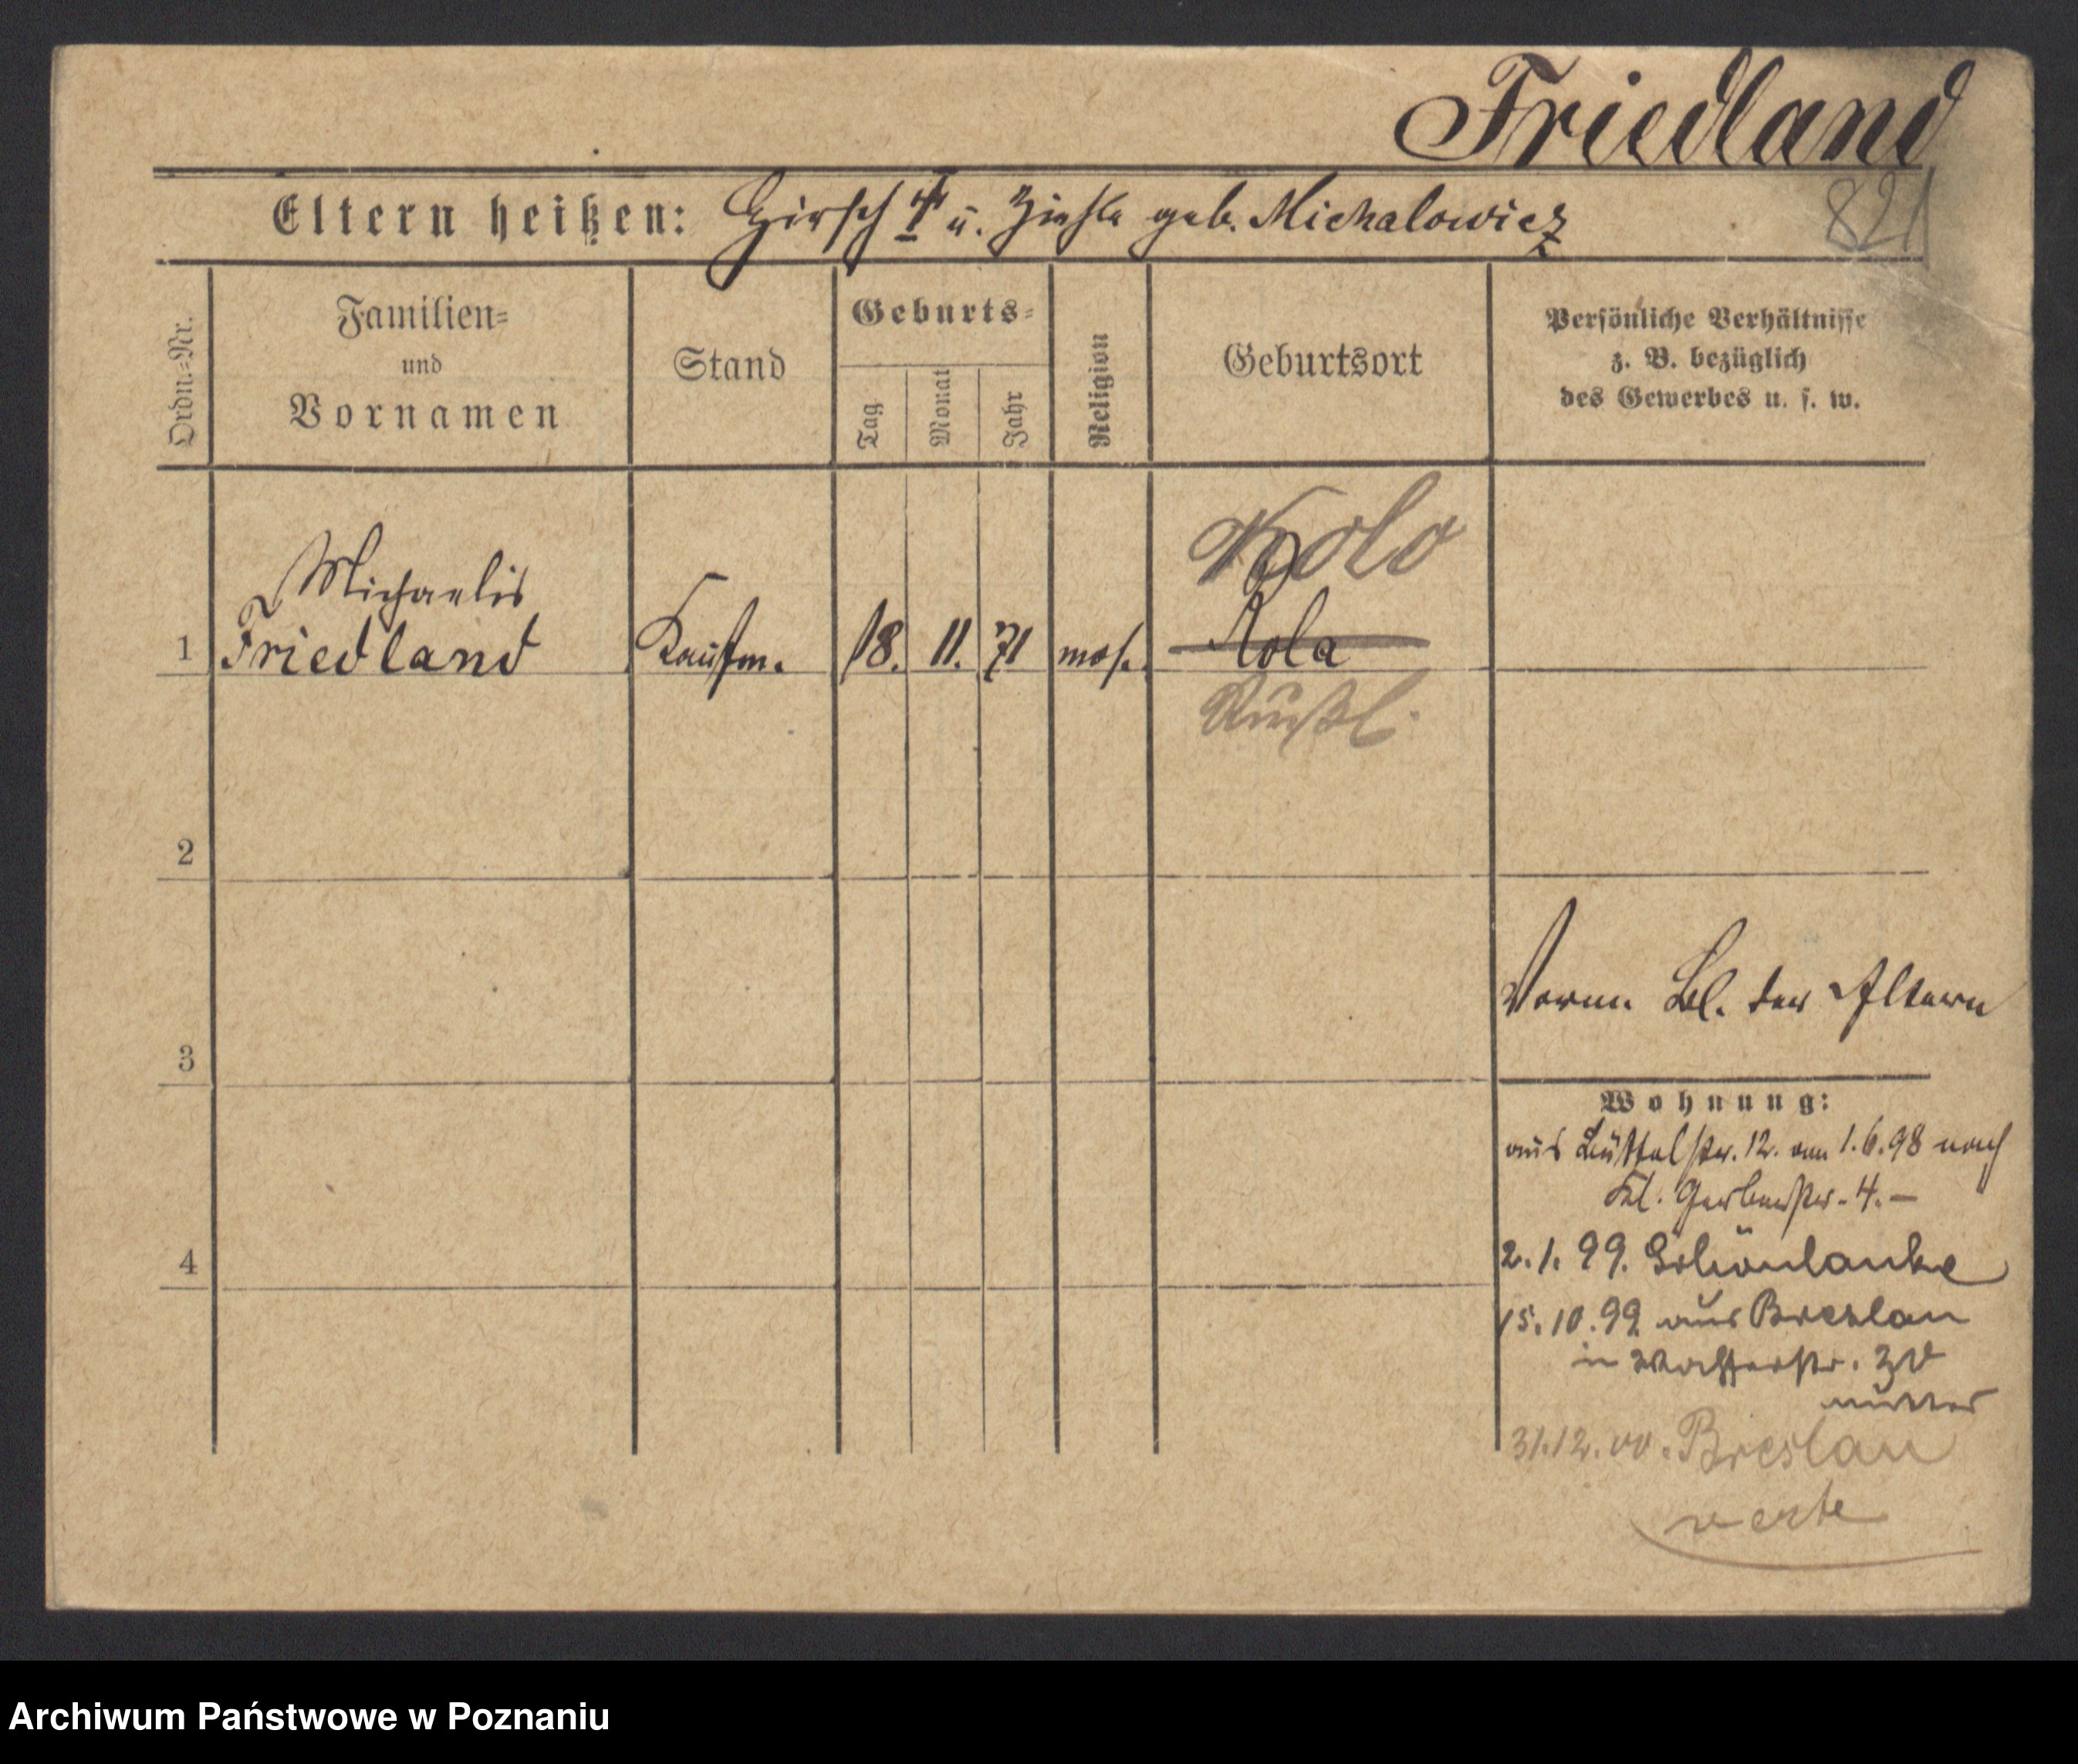 Friedland
821
Eltern heißen: Hirsch † u. Ziehla geb. Michalowicz
Ordn.=Nr.
Familien=
und
Vornamen
Stand
Geburts=
Tag
Monat
Jahr
Religion
Geburtsort
Persönliche Verhältnisse
z. B. bezüglich
des Gewerbes u. s. w.
Kolo
Michaelis
1 Friedland Kaufm. 18. 11. 71 mos. Kola
Rußl.
2
Vorm. Bl. der Altern
3
Wohnung:
aus Büttelstr. 12. am 1.6.98 nach
Kl. Gerberstr. 4. –
2.1.99. Schönlanke
4
15.10.99 aus Breslau
in Wasserstr.
31.12.00. Breslau
verte
Archiwum Państwowe w Poznaniu